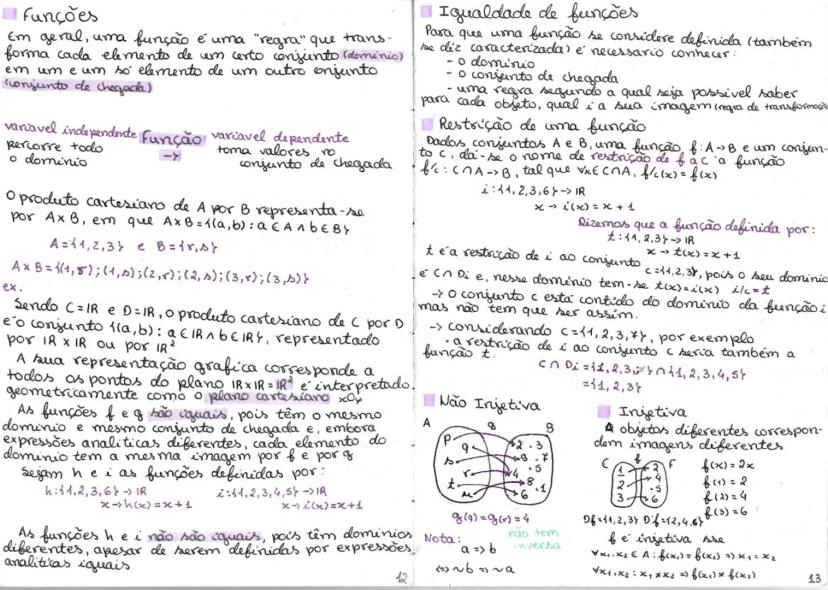 Funções
Em geral, uma função é uma "regra" que trans-
forma cada elemento de um certo conjunto (domínio)
em um e um só elemento de um outro conjunto
(conjunto de chegada)
variavel independente Função variavel dependente
percorre todo toma valores no
o domínio conjunto de chegada
O produto cartesiano de A por B representa-se
por A x B, em que A x B = {(a,b) : a ∈ A ∧ b ∈ B}
A = {1,2,3} e B = {r,s}
A x B = {(1,r);(1,s);(2,r);(2,s);(3,r);(3,s)}
ex.
Sendo C = IR e D = IR, o produto cartesiano de C por D
é o conjunto {(a,b) : a ∈ IR ∧ b ∈ IR}, representado
por IR x IR ou por IR²
A sua representação grafica corresponde a
todos os pontos do plano IR x IR = IR² e é interpretado
geometricamente como o plano cartesiano xOy
As funções f e g são iguais, pois têm o mesmo
dominio e mesmo conjunto de chegada e, embora
expressões analiticas diferentes, cada elemento do
dominio tem a mesma imagem por f e por g
Sejam h e i as funções definidas por:
h: {1,2,3,6} -> IR i: {1,2,3,4,5} -> IR
x -> h(x) = x + 1 x -> i(x) = x + 1
As funções h e i não são iguais, pois têm domínios
diferentes, apesar de serem definidas por expressões
analiticas iguais
12
Igualdade de funções
Para que uma função se considere definida (também
se diz caracterizada) é necessario conhecer:
- o domínio
- o conjunto de chegada
- uma regra segundo a qual seja possivel saber
para cada objeto, qual é a sua imagem (regra de transformação
Restrição de uma função
Dados conjuntos A e B, uma função f: A -> B e um conjun-
to C, dá-se o nome de restrição de f a C a função
f/c : C ∩ A -> B, tal que ∀x ∈ C ∩ A, f/c(x) = f(x)
i: {1,2,3,6} -> IR
x -> i(x) = x + 1
Dizemos que a função definida por:
t: {1,2,3} -> IR
x -> t(x) = x + 1
t é a restrição de i ao conjunto
C = {1,2,3}, pois o seu dominio
é C ∩ Di e, nesse dominio tem-se t(x) = i(x) i/c = t
-> O conjunto C está contido do dominio da função i
mas não tem que ser assim.
-> considerando C = {1,2,3,7}, por exemplo
• a restrição de i ao conjunto C seria também a
função t.
C ∩ Di = {1,2,3,7} ∩ {1,2,3,4,5}
= {1,2,3}
Não Injetiva
A g B
p q s r t u
2 • 3
9 • 7
4 • 5
8
6 • 1
g(q) = g(r) = 4
Nota: não tem
inversa
a => b
<=> ~b => ~a
Injetiva
A objetos diferentes correspon-
dem imagens diferentes
C f F
1 2 3
2 4 • 5 6
f(x) = 2x
f(1) = 2
f(2) = 4
f(3) = 6
Df = {1,2,3} D'f = {2,4,6}
f é injetiva sse
∀x₁, x₂ ∈ A : f(x₁) = f(x₂) => x₁ = x₂
∀x₁, x₂ : x₁ ≠ x₂ => f(x₁) ≠ f(x₂)
13